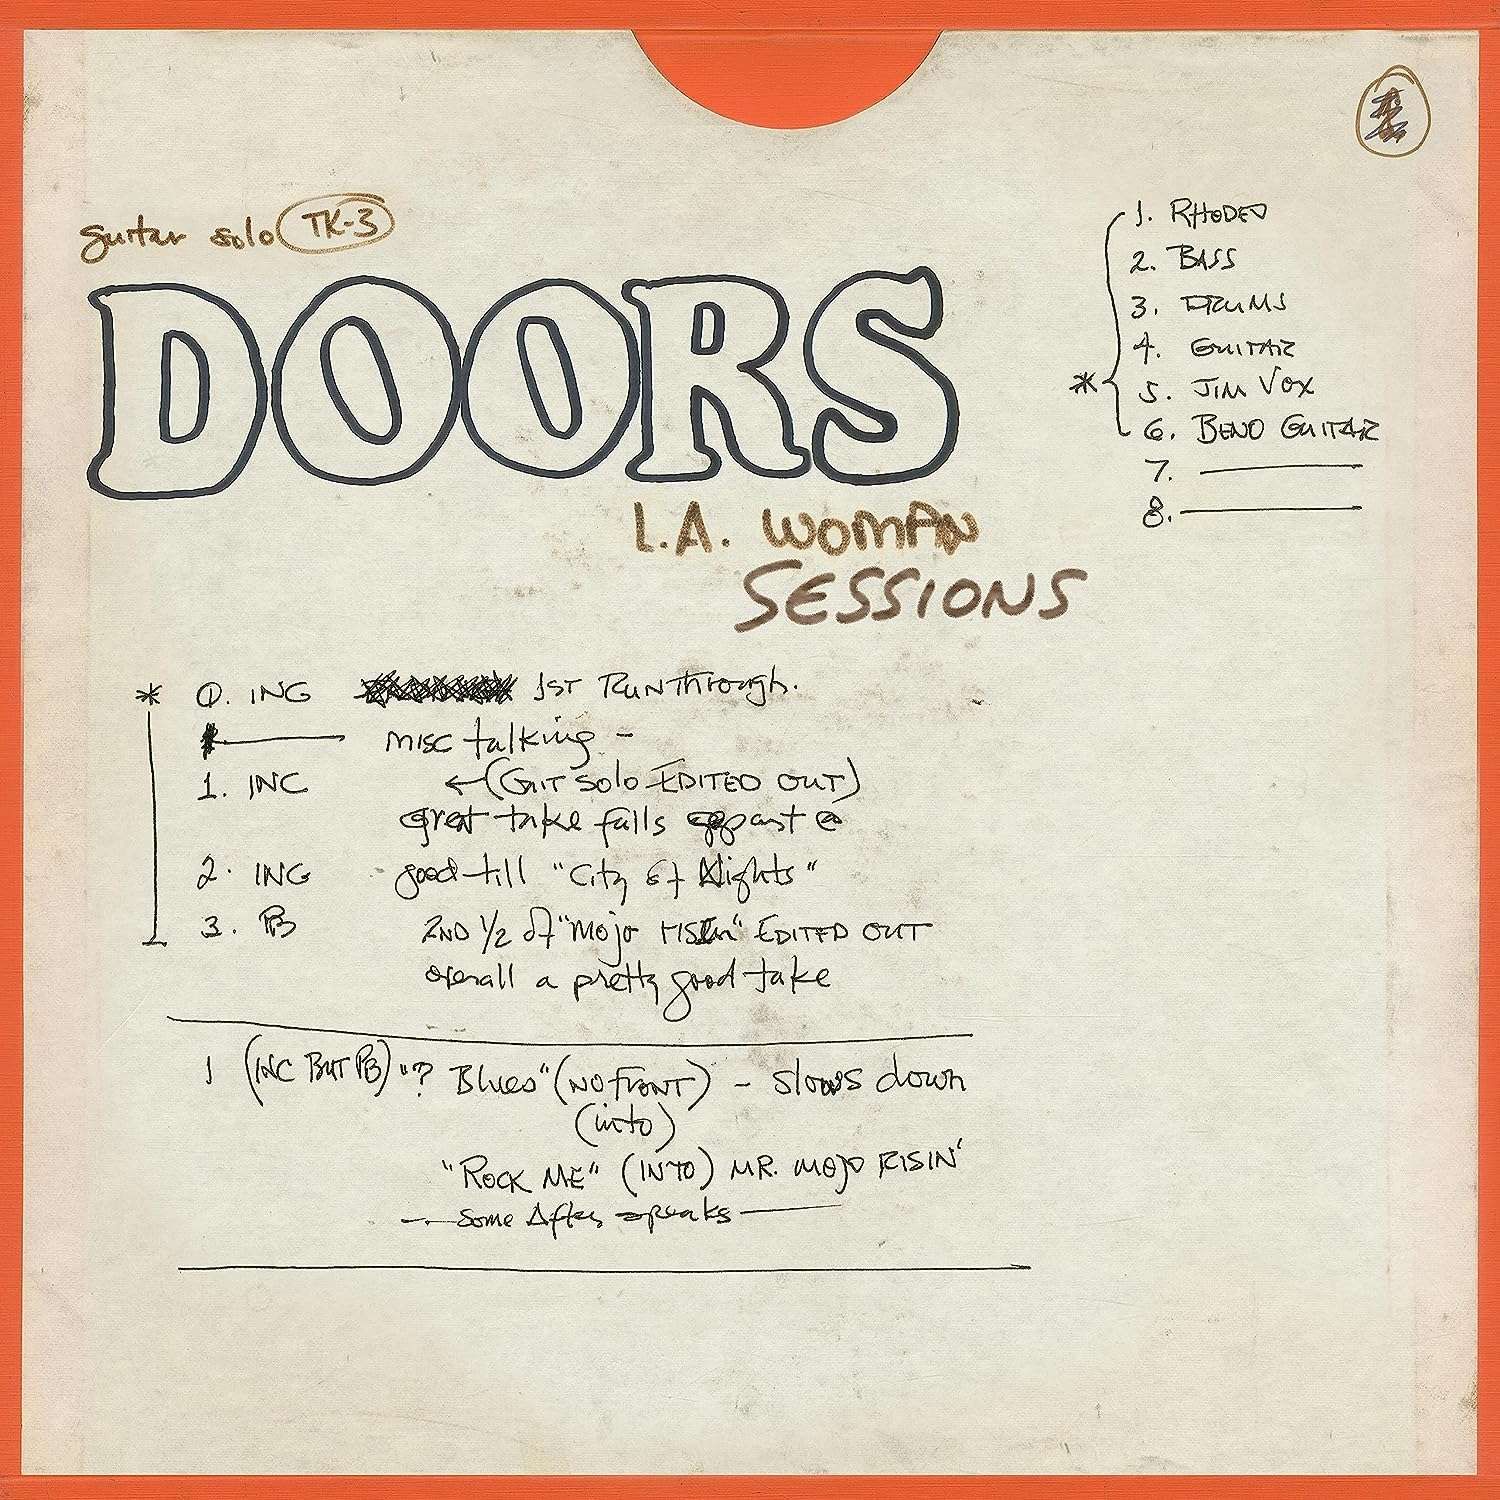 guitar solo TK-3
DOORS
L.A. WOMAN
SESSIONS
1. RHODES
2. BASS
3. DRUMS
4. GUITAR
5. JIM VOX
6. BENO GUITAR
7.
8.
* 0. INC 1ST RUNThrough.
misc talking -
1. INC ←(GUIT Solo EDITED OUT)
great take falls appart @
2. INC good till "City of Nights"
3. PB 2ND 1/2 of "Mojo risin" EDITED OUT
overall a pretty good take
1 (INC BUT PB) "? Blues" (NO FRONT) - slows down
(into)
"ROCK ME" (INTO) MR. MOJO RISIN'
Some After speaks